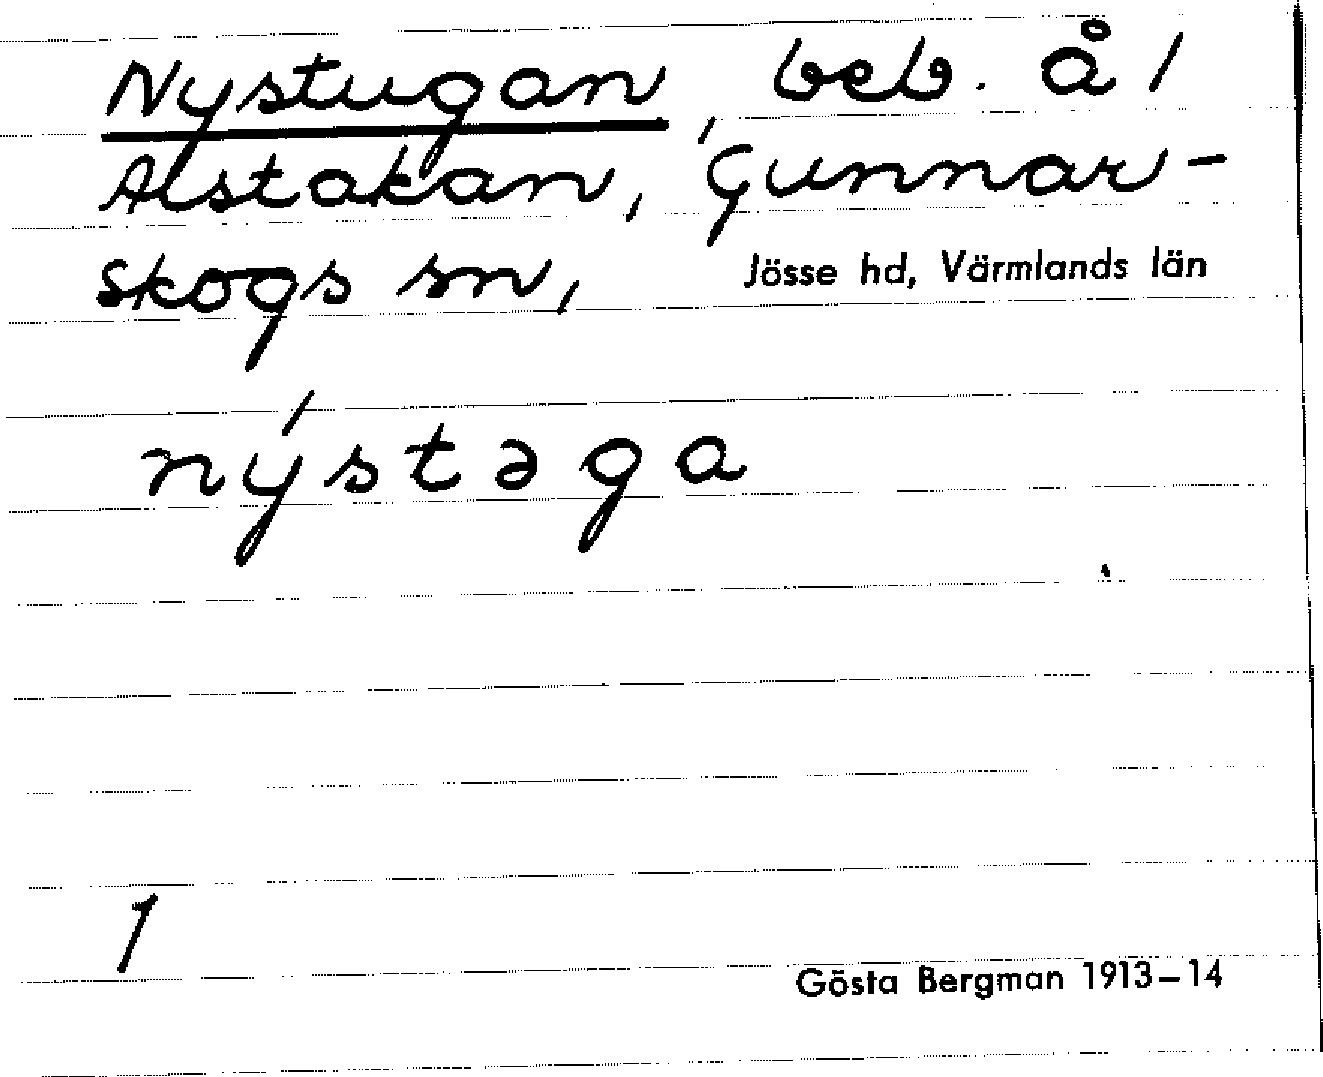 Nystugan, beb. å 1
Alstakan, Gunnar-
skogs sn, Jösse hd, Värmlands län
nýstəga
1
Gösta Bergman 1913–14